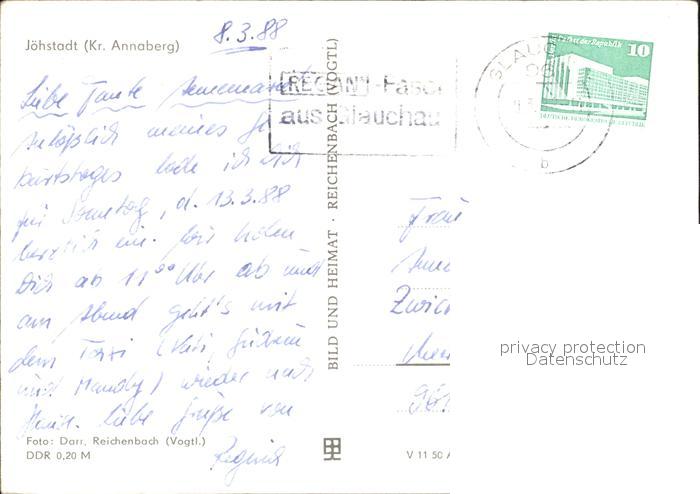 Jöhstadt (Kr. Annaberg)
8.3.88
Liebe Tante Annemarie
Anläßlich meines Ge
burtstages lade ich Dich
für Sonntag, d. 13.3.88
herzlich ein. Wir holen
Dich ab 11⁰⁰ Uhr ab und
am Abend geht's mit
dem Taxi (
und Mandy) wieder nach
Hause. Liebe Grüße von
Regina
Foto: Darr, Reichenbach (Vogtl.)
DDR 0,20 M
BILD UND HEIMAT · REICHENBACH (VOGTL)
V 11 50 A
aus Glauchau
GLAUC
b
Palast der Republik
10
DEUTSCHE DEMOKRATISCHE REPUBLIK
Frau
Anne
Zwic
961
privacy protection
Datenschutz